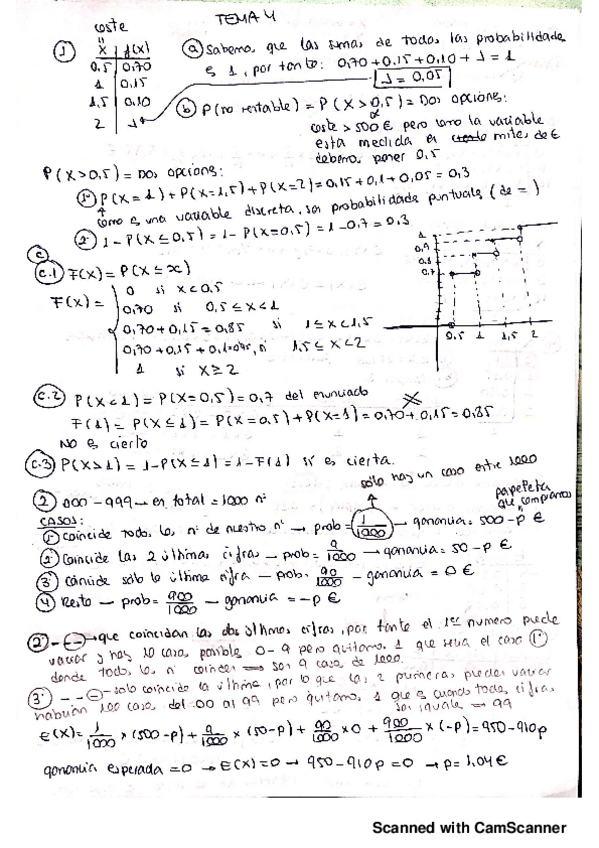 TEMA 4
coste
"
① X | f(x)
0,5 | 0,70
1 | 0,15
1,5 | 0,10
2 |
ⓐ Sabemos que las sumas de todas las probabilidades
es 1, por tanto: 0,70 + 0,15 + 0,10 + = 1
= 0,05
ⓑ P(no rentable) = P(X > 0,5) = Dos opciones:
coste > 500 € pero como la variable
esta medida en miles de €
debemos poner 0,5
P(X > 0,5) = Dos opciones:
① P(X = 1) + P(X = 1,5) + P(X = 2) = 0,15 + 0,1 + 0,05 = 0,3
como es una variable discreta, son probabilidades puntuales (de =)
② 1 - P(X ≤ 0,5) = 1 - P(X = 0,5) = 1 - 0,7 = 0,3
ⓒ
c.1 F(x) = P(X ≤ x)
F(x) =
0 si x < 0,5
0,70 si 0,5 ≤ x < 1
0,70 + 0,15 = 0,85 si 1 ≤ x < 1,5
0,70 + 0,15 + 0,1 = 0,95, si 1,5 ≤ x < 2
1 si x ≥ 2
1
0,9
0,8
0,7
0,5 1 1,5 2
c.2 P(X < 1) = P(X = 0,5) = 0,7 del enunciado
F(1) = P(X ≤ 1) = P(X = 0,5) + P(X = 1) = 0,70 + 0,15 = 0,85
NO es cierto
c.3 P(X > 1) = 1 - P(X ≤ 1) = 1 - F(1) sí es cierta.
solo hay un caso entre 1000
② 000 - 999 — en total = 1000 nº
papeleta que compramos
CASOS:
① Coincide todos los nº de nuestro nº → prob = 1/1000 → ganancia = 500 - p €
② Coincide las 2 últimas cifras — prob = 9/1000 → ganancia = 50 - p €
③ coincide solo la última cifra — prob = 90/1000 — ganancia = 0 €
④ Resto — prob = 900/1000 — ganancia = -p €
② - — — → que coincidan las dos últimas cifras, por tanto el 1er numero puede
variar y hay 10 casos posibles 0 - 9 pero quitamos 1 que seria el caso ①
donde todos los nº coinciden ⟹ son 9 casos de 1000.
③ - - — - solo coincida la última, por lo que las 2 primeras pueden variar
habrían 100 casos del 00 al 99 pero quitamos 1 que es cuando todas cifras
son iguales = 99
E(X) = 1/1000 × (500 - p) + 9/1000 × (50 - p) + 90/1000 × 0 + 900/1000 × (-p) = 950 - 910p
ganancia esperada = 0 → E(X) = 0 → 950 - 910p = 0 → p = 1,04 €
Scanned with CamScanner